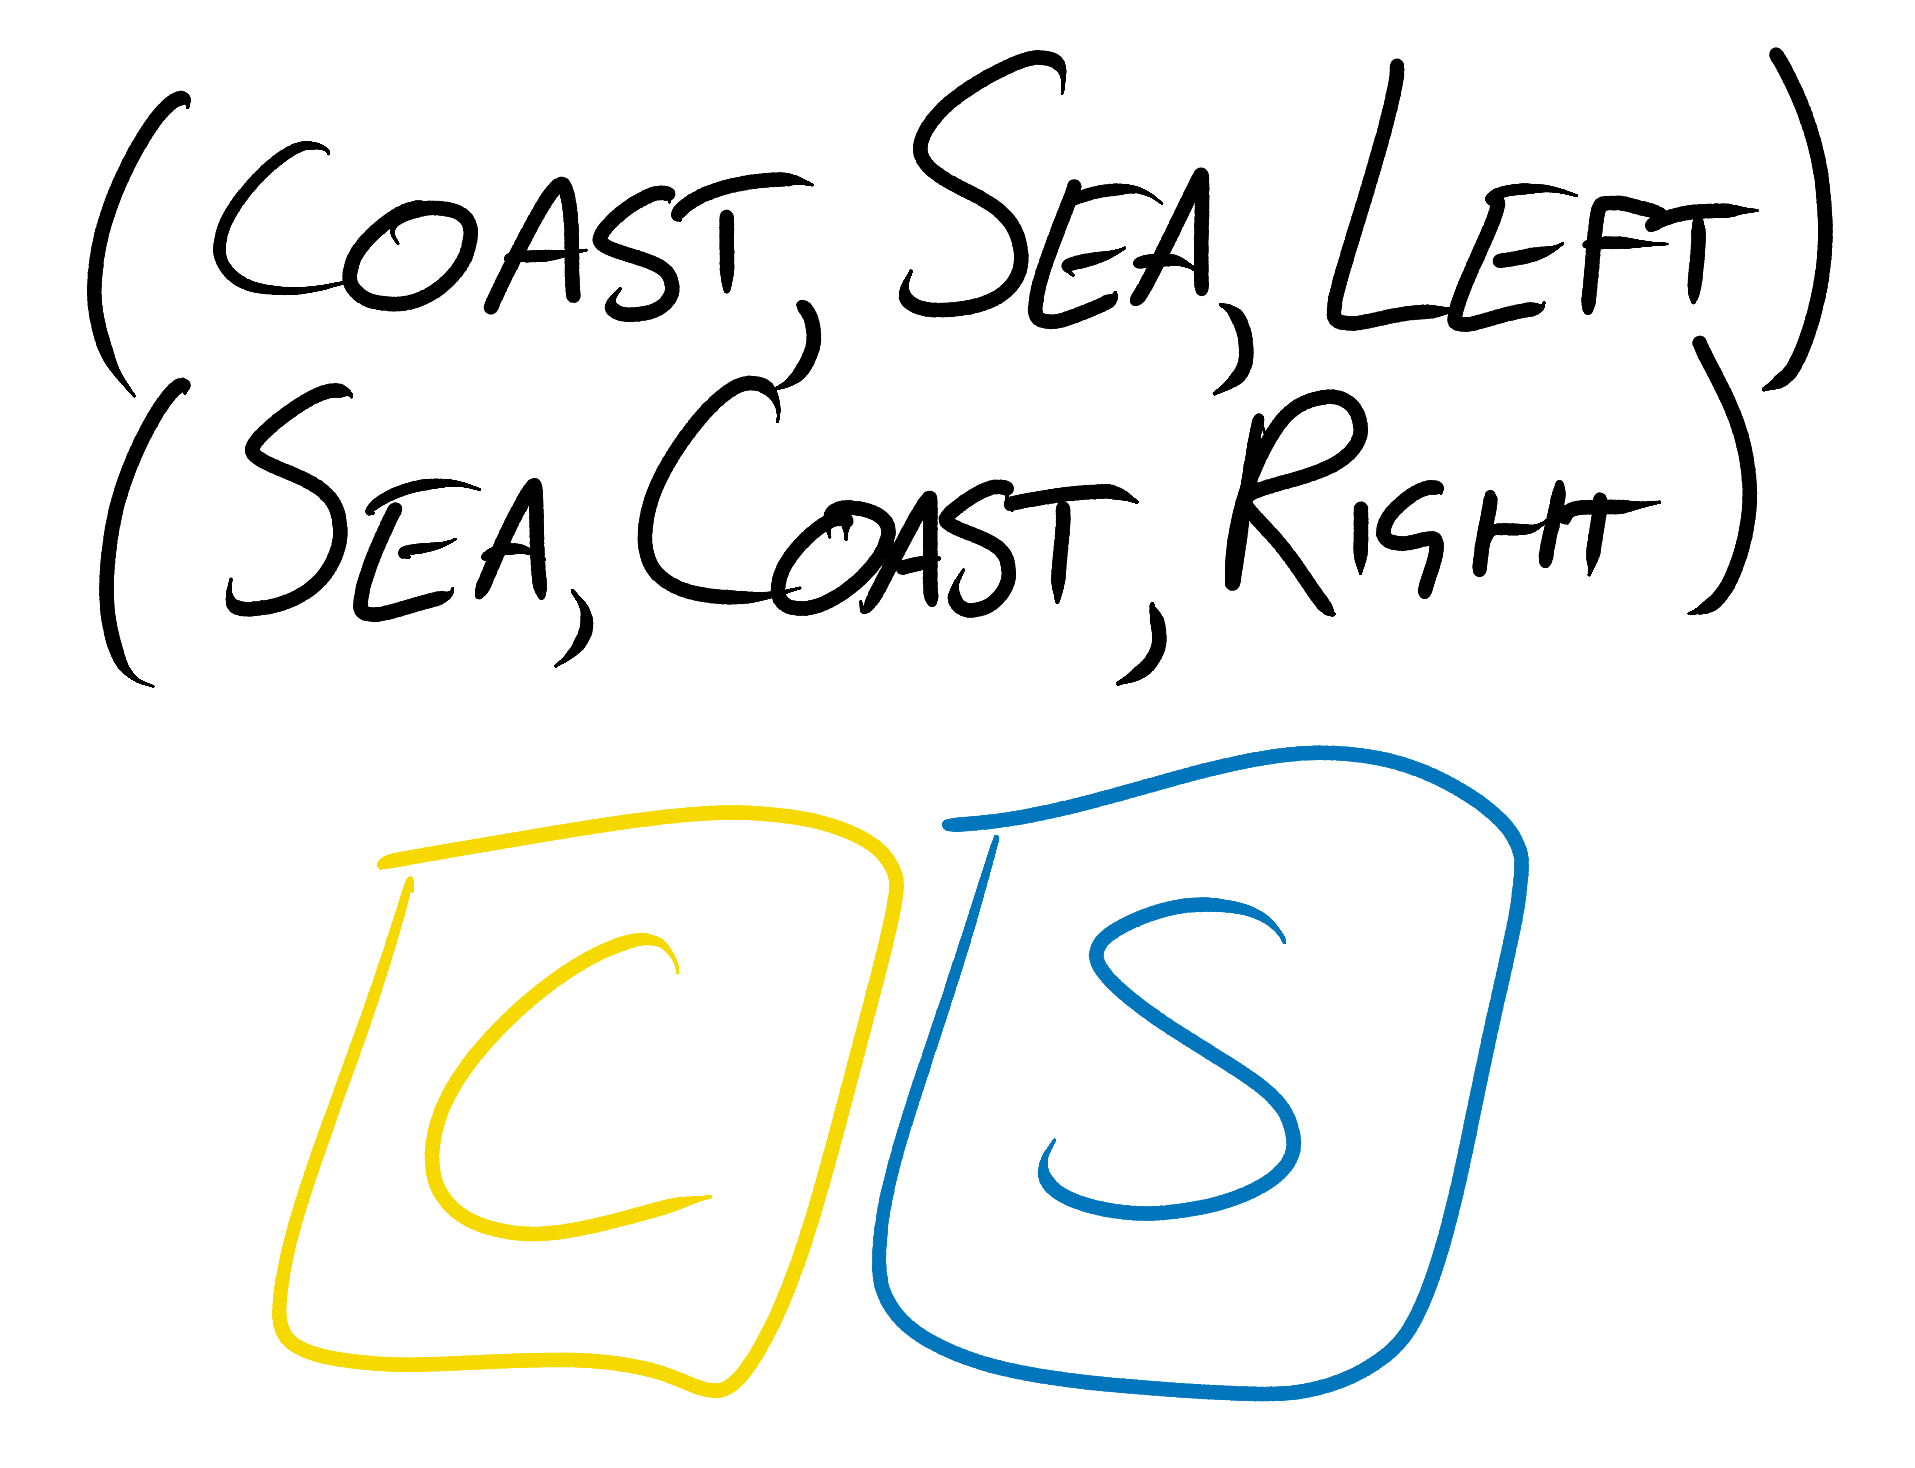 (COAST, SEA, LEFT)
(SEA, COAST, RIGHT)
C S